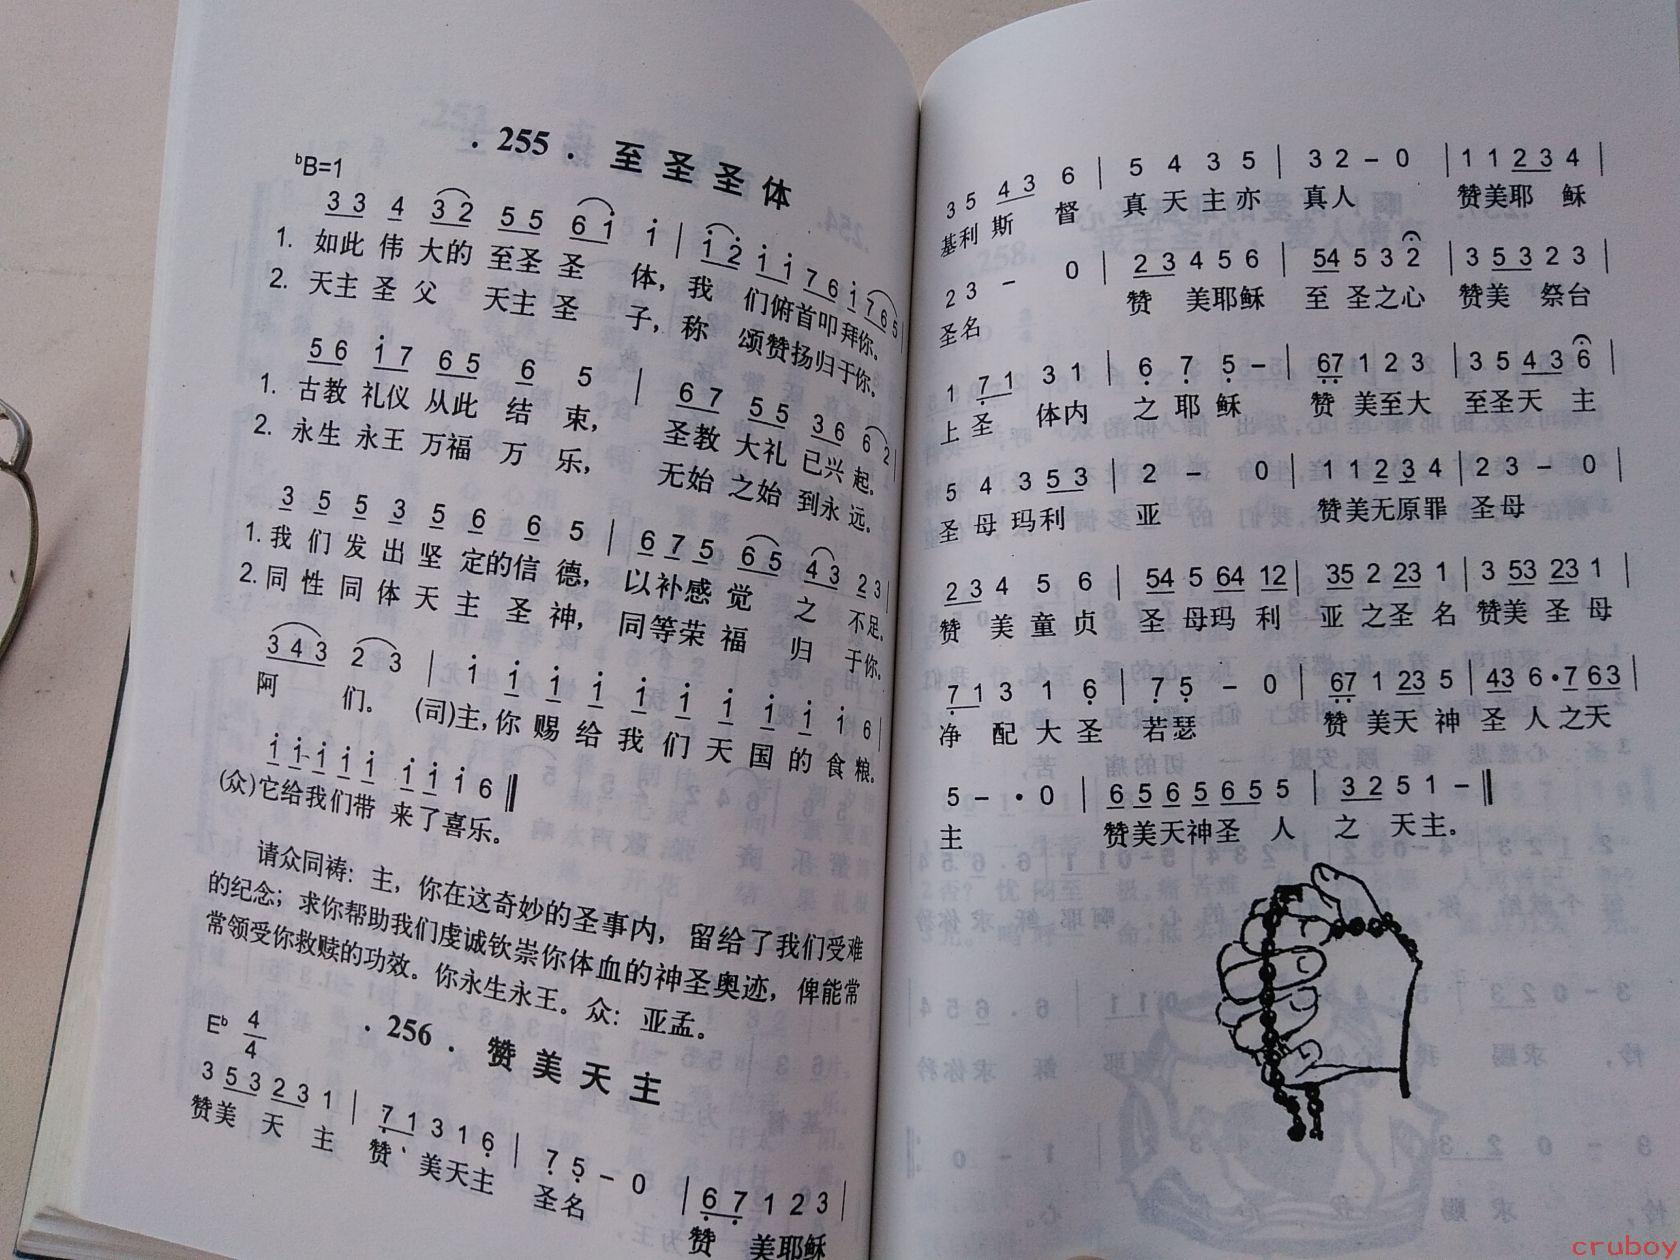 ·255· 至圣圣体
ᵇB=1
3 3 4 3 2 5 5 6 i i | i 2 i i 7 6 i 7 6 5 |
1. 如此 伟 大的 至圣 圣 体, 我 们俯首叩拜你。
2. 天主 圣 父 天主 圣 子, 称 颂赞扬归于你.
5 6 i 7 6 5 6 5 | 6 7 5 5 3 6 6 2 |
1. 古教 礼仪 从此 结 束, 圣教 大礼 已兴 起.
2. 永生 永王 万福 万 乐, 无始 之始 到永 远.
3 5 5 3 5 6 6 5 | 6 7 5 6 5 4 3 2 3 |
1. 我 们 发 出 坚 定的信 德, 以补感 觉 之 不足.
2. 同 性 同 体 天 主 圣 神, 同等荣 福 归 于你.
3 4 3 2 3 | i i i i i i i i i i 6 |
阿 们。 (司)主,你 赐 给 我 们 天 国 的 食 粮.
i i i i i i i i 6 ‖
(众)它给我们带 来了喜乐.
请众同祷：主，你在这奇妙的圣事内，留给了我们受难
的纪念；求你帮助我们虔诚钦崇你体血的神圣奥迹，俾能常
常领受你救赎的功效。你永生永王。众：亚孟。
·256· 赞美天主
Eᵇ 4/4
3 5 3 2 3 1 | 7 1 3 1 6 | 7 5 – 0 | 6 7 1 2 3 |
赞美 天 主 赞 美天主 圣名 赞 美耶稣
3 5 4 3 6 | 5 4 3 5 | 3 2 – 0 | 1 1 2 3 4 |
基利 斯 督 真 天 主 亦 真人 赞美耶 稣
2 3 – 0 | 2 3 4 5 6 | 5 4 5 3 2 | 3 5 3 2 3 |
圣名 赞 美耶稣 至 圣之心 赞美 祭台
1 7 1 3 1 | 6 7 5 – | 6 7 1 2 3 | 3 5 4 3 6 |
上 圣 体内 之 耶 稣 赞 美至大 至圣天 主
5 4 3 5 3 | 2 – 0 | 1 1 2 3 4 | 2 3 – 0 |
圣 母 玛利 亚 赞美无原罪 圣母
2 3 4 5 6 | 5 4 5 6 4 1 2 | 3 5 2 2 3 1 | 3 5 3 2 3 1 |
赞 美 童 贞 圣 母玛 利 亚 之圣 名 赞美 圣 母
7 1 3 1 6 | 7 5 – 0 | 6 7 1 2 3 5 | 4 3 6·7 6 3 |
净 配 大 圣 若瑟 赞 美天 神 圣 人 之天
5 – · 0 | 6 5 6 5 6 5 5 | 3 2 5 1 – ‖
主 赞美天神圣 人 之 天主。
cruboy